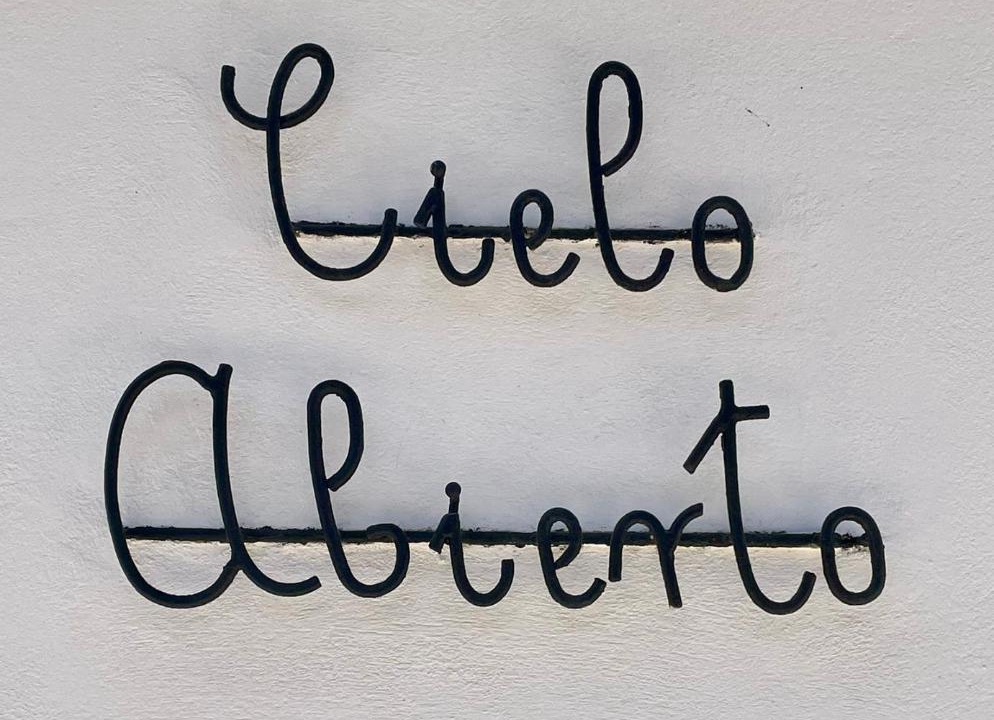 Cielo
Abierto